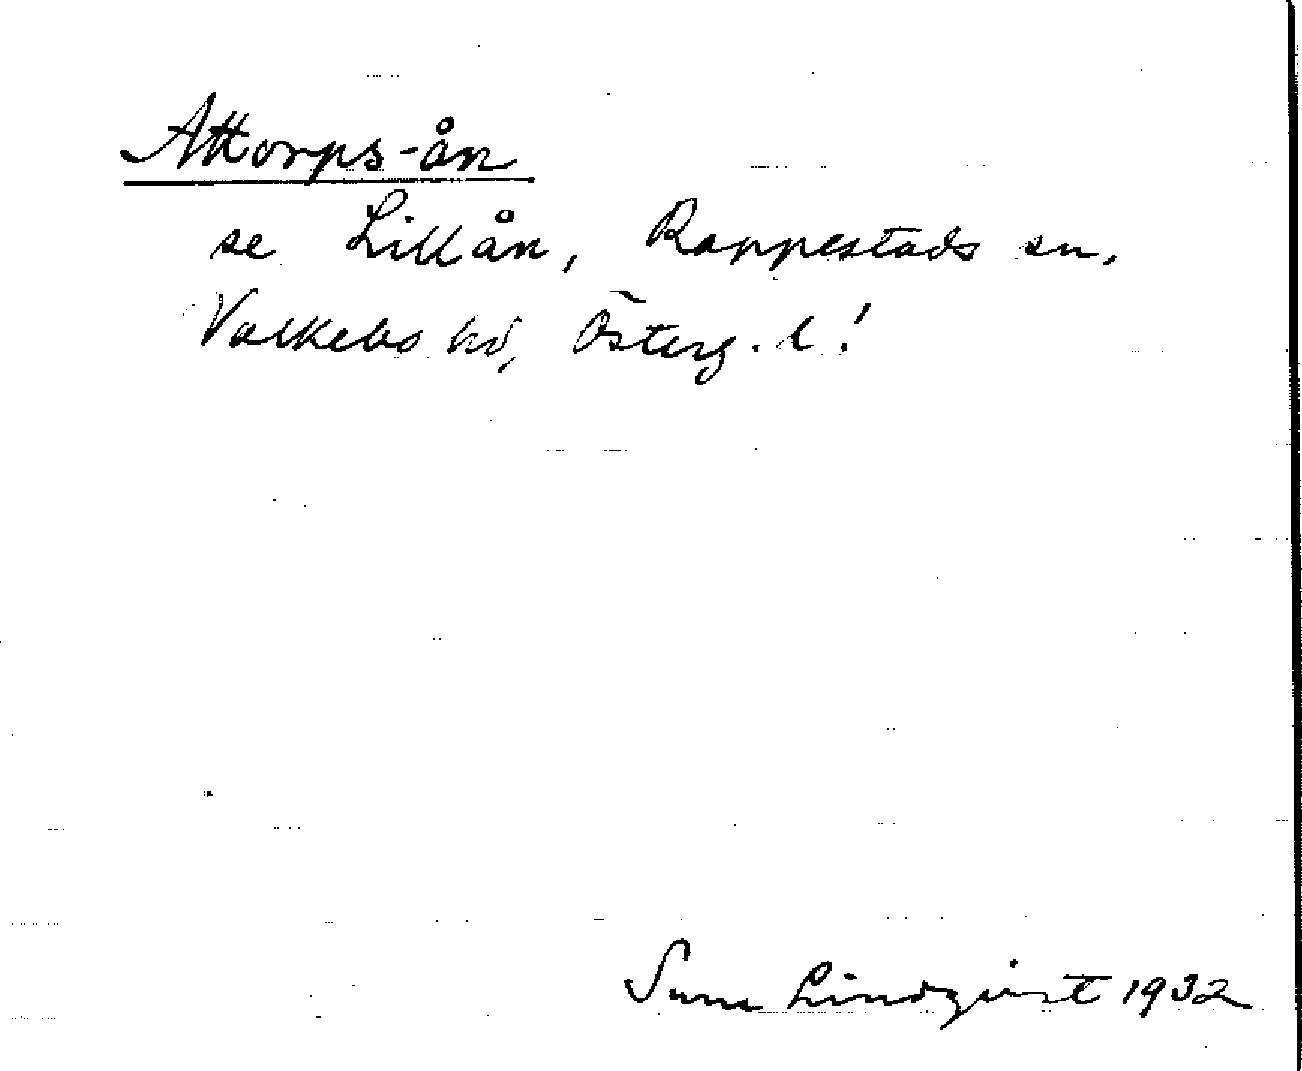 Attorps-ån
se Lillån, Rappestads sn,
Valkebo hd, Österg. l!
Sune Lindqvist 1932